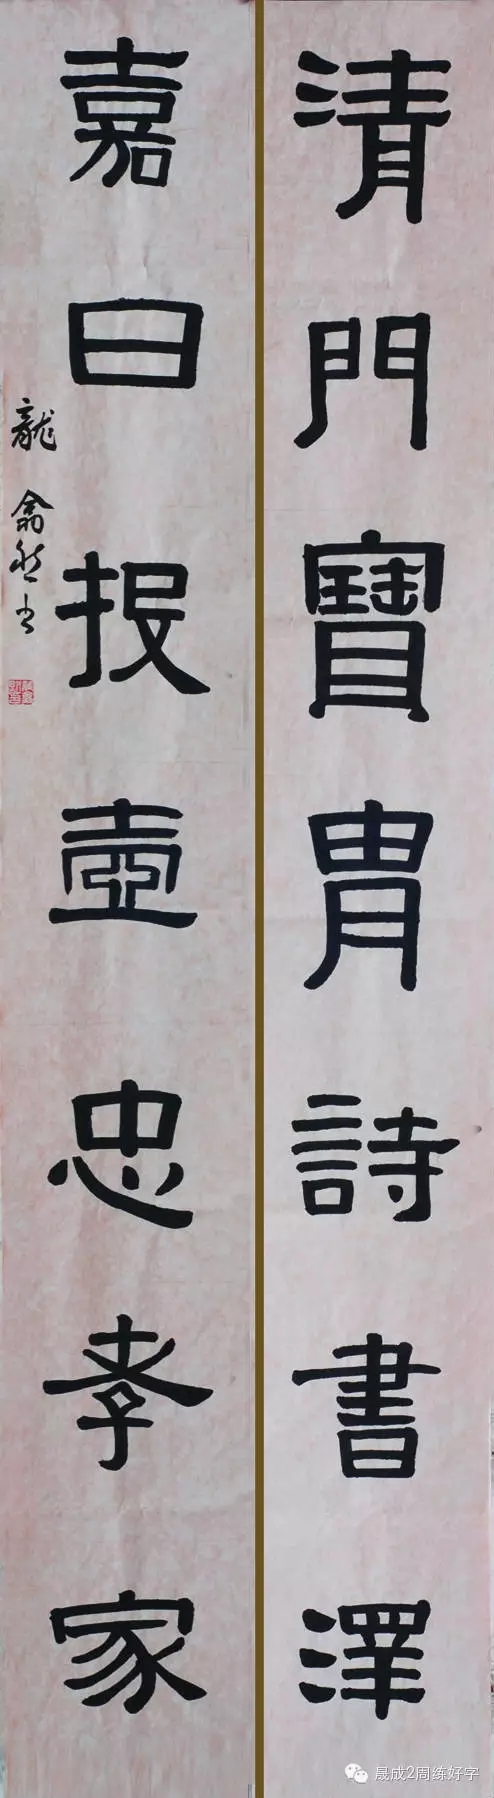 清門寶胄詩書澤
嘉日投壺忠孝家
龍 翕然书
晟成2周练好字